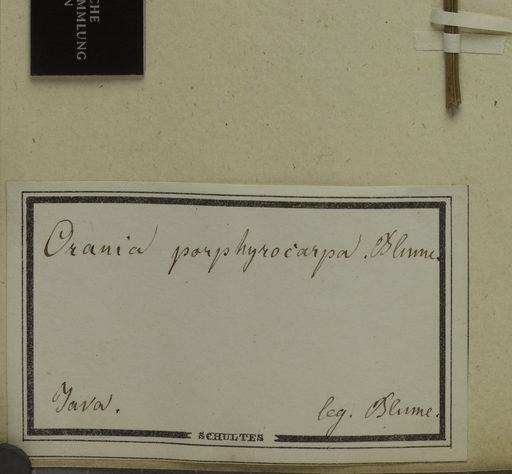 CHE
MMLUNG
N
Orania porphyrocarpa. Blume.
Java.
leg. Blume.
SCHULTES